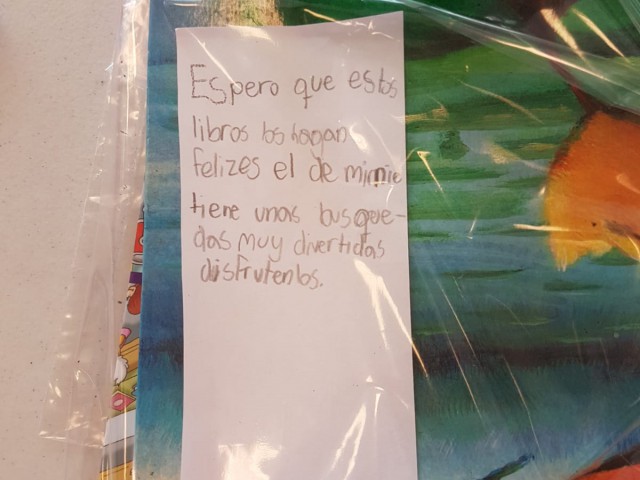 Espero que estos
libros los hagan
felizes el de minnie
tiene unas busque-
das muy divertidas
disfrutenlos.